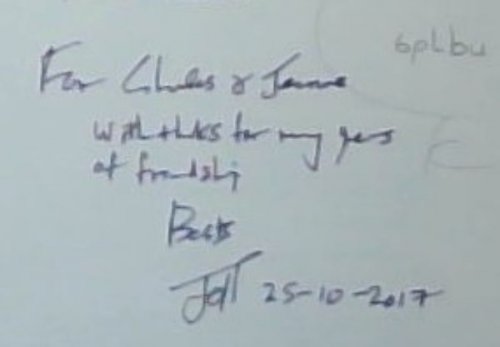 6pLbu
For Charles & Jeanne
with thks for many years
of friendship
Bests
25-10-2017